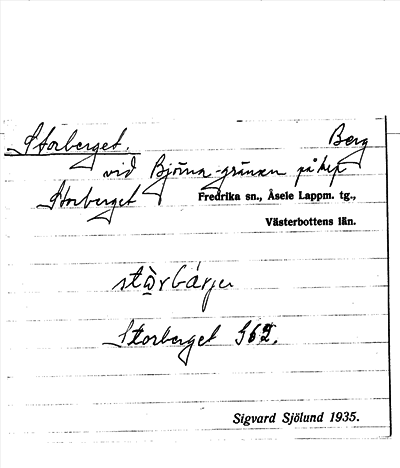 Storberget. Berg
vid Björna-gränsen på hep
Storberget Fredrika sn., Åsele Lappm. tg.,
Västerbottens län.
Storberget
Sigvard Sjölund 1935.